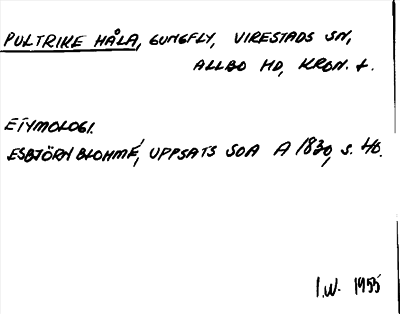 PULTRIKE HÅLA, GUNGFLY, VIRESTADS SN,
ALLBO HD, KRON. L.
ETYMOLOGI.
ESBJÖRN BLOHMÉ, UPPSATS SOA A 1830, S. 40.
I.W. 1955